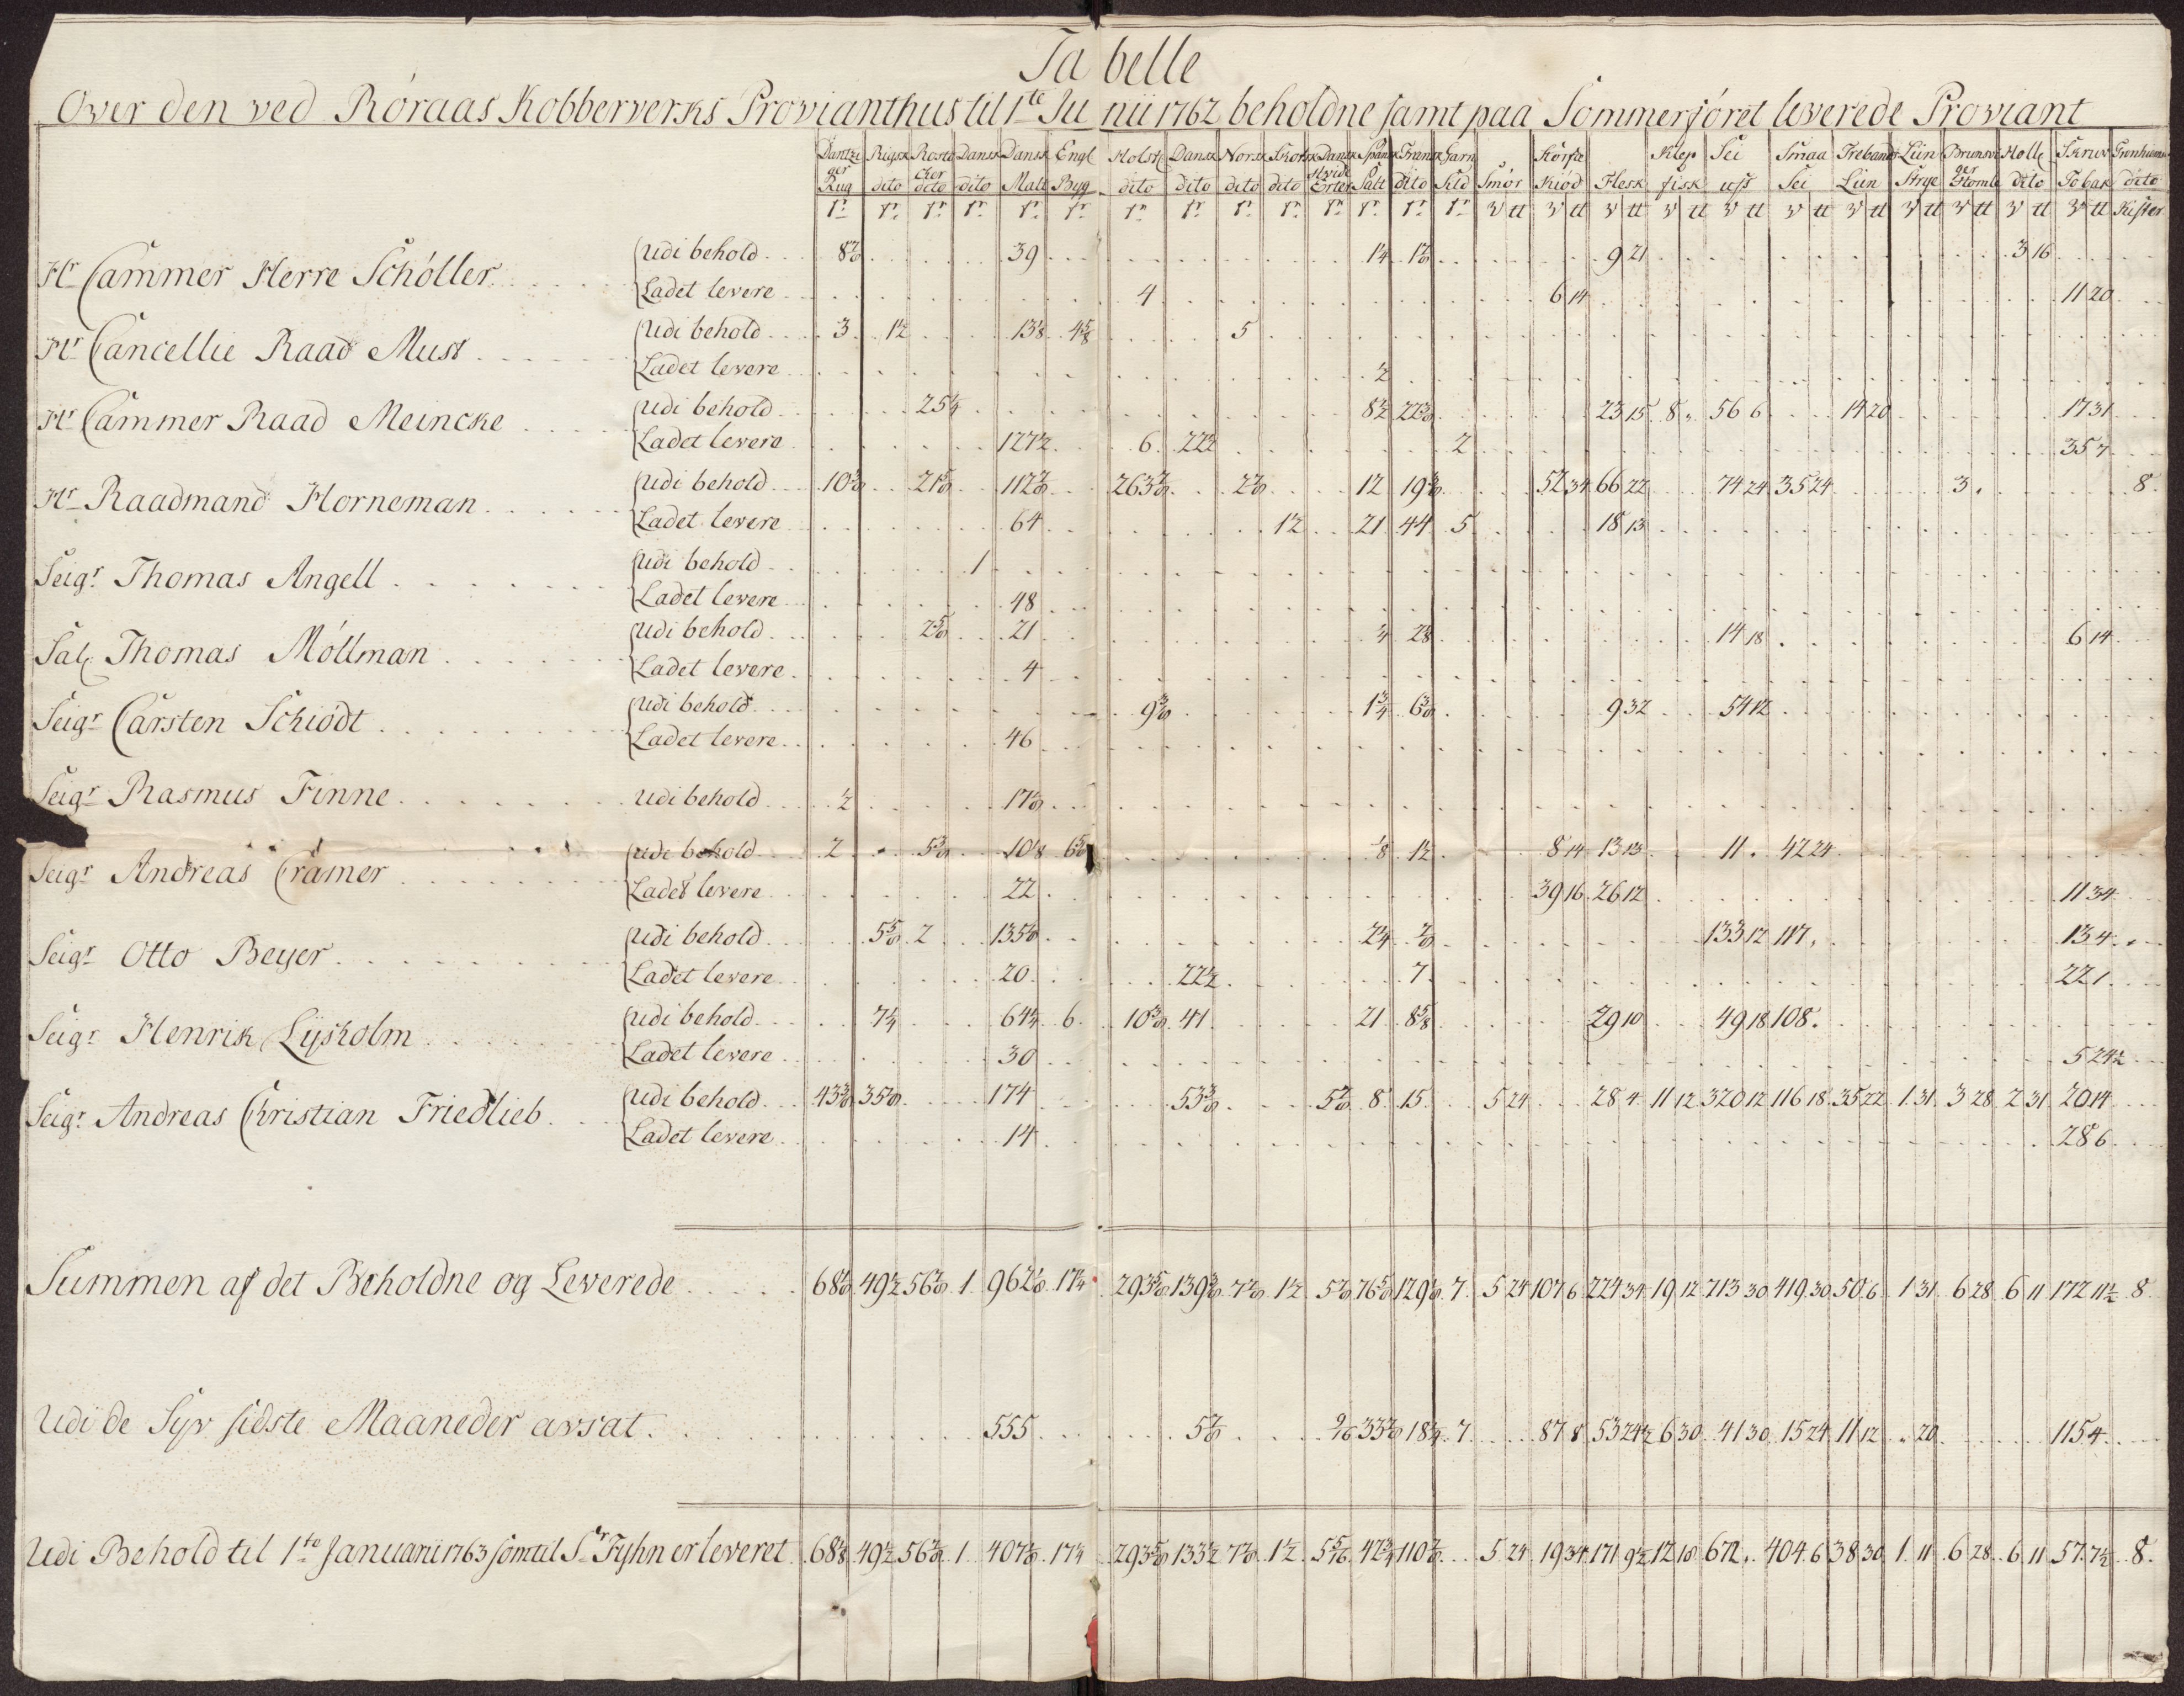 Tabelle
Over den ved Röraas Kobberverks Provianthus til 1te Junii 1762 beholdne samt paa Sommerföret leverede Proviant
Dantziger Rug Rigsk dito Rostocker dito Dansk dito Dansk Malt Engl Byg Holst dito Dansk dito Norsk dito Skotsk dito Dansk Hvide Erter Spansk Salt Fransk dito Garn Sild Smör Kiöd Flesk Klep fisk Sei Smaa Sei Trebands Liin Liin Strye Brunsviger Homle Holl dito Skruv Tobak dito
Kister
Hr Cammer Herre Schöller
Udi behold 39 14 9 21 3 16
Ladet levere 4 6 14 11 20
Hr Cancellie Raad Must
Udi behold 3 1½ 13⅛ 4⅝ 5
Ladet levere ½
Hr Cammer Raad Meincke
Udi behold 25¼ 8½ 23 15 8 „ 56 6 14 20 17 31
Ladet levere 127½ 6 22½ 2 35 7
Hr Raadmand Horneman
Udi behold 12 52 34 66 22 74 24 35 24 3 . 8
Ladet levere 64 1½ 21 44 5 18 13
Seigr Thomas Angell
Udi behold 1
Ladet levere 48
Sal Thomas Möllman
Udi behold 2⅝ 21 14 18 6 14
Ladet levere 4
Seigr Carsten Schiödt
Udi behold 9⅜ 1¾ 9 32 54 12
Ladet levere 46
Seigr Rasmus Finne
Udi behold ½
Seigr Andreas Cramer
Udi behold 2 10⅛ ⅛ 1½ 8 14 13 13 11 . 42 24
Ladet levere 22 39 16 26 12 11 34
Seigr Otto Beyer
Udi behold 5⅝ 2 2¼ 133 12 117 . 13 4
Ladet levere 20 22½ 7 22 1
Seigr Henrik Lysholm
Udi behold 7¼ 64¼ 6 10⅜ 41 21 8⅝ 29 10 49 18 108 .
Ladet levere 30 5 24½
Seigr Andreas Christian Friedlieb
Udi behold 43⅜ 174 53⅜ 8 15 5 24 28 4 11 12 320 12 116 18 35 22 1 31 3 28 2 31 20 14
Ladet levere 14 28 6
Summen af det Beholdne og Leverede 49½ 1 17¼ 293⅝ 1½ 76⅝ 7 5 24 107 6 224 34 19 12 713 30 419 30 50 6 1 31 6 28 6 11 172 11½ 8
Udi de Syv sidste Maaneder avsat 555 18¾ 7 87 8 53 24½ 6 30 41 30 15 24 11 12 „ 20 115 4
Udi Behold til 1te Januarii 1763 som til Sr Fyhn er leveret 49½ 1 17¼ 293⅝ 133½ 1½ 42¾ 5 24 19 34 171 9½ 12 18 672 . 404 6 38 30 1 11 6 28 6 11 57 7½ 8